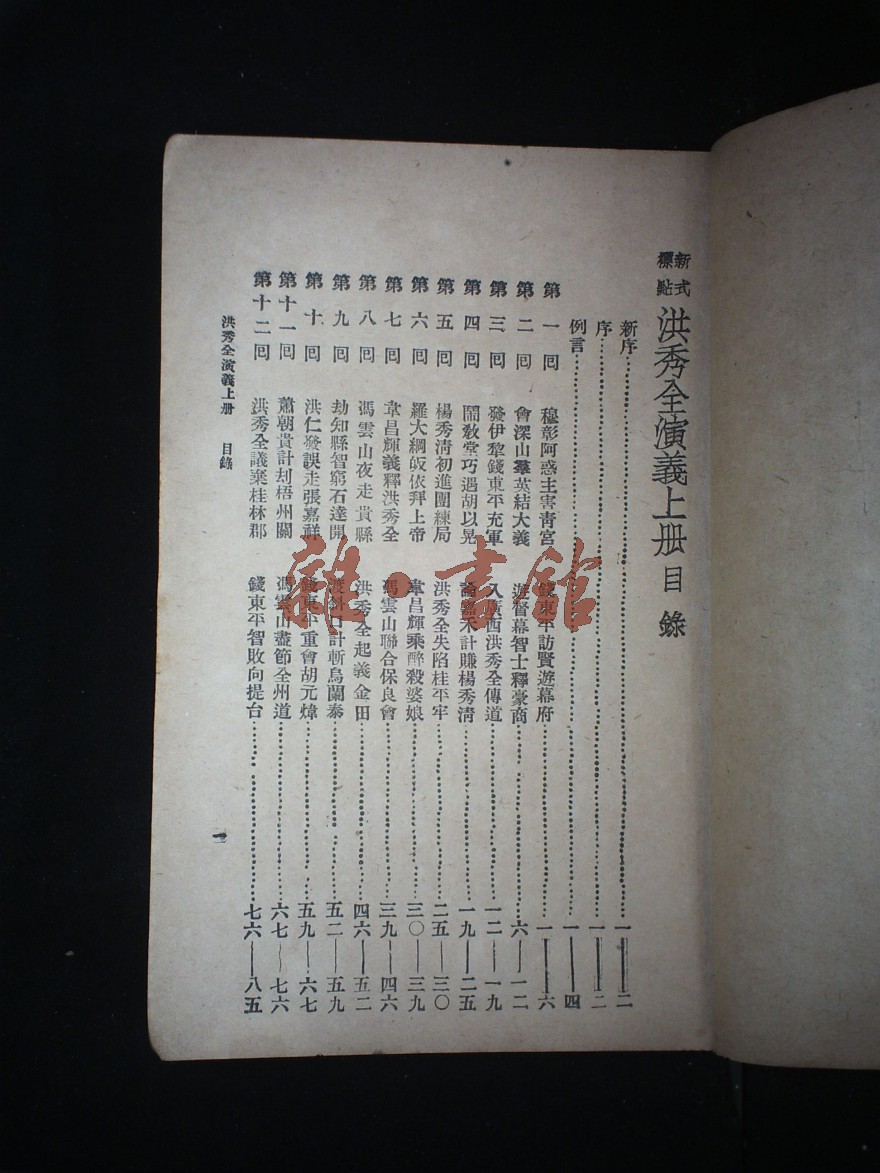 新式標點 洪秀全演義上册目錄
新序……一——二
序……一——二
例言……一——四
第一回 穆彰阿惑主害青宮 錢東平訪賢遊幕府……一——六
第二回 會深山羣英結大義 遊督幕智士釋豪商……六——一二
第三回 發伊犂錢東平充軍 入廣西洪秀全傳道……一二——一九
第四回 鬧敎堂巧遇胡以晃 論嘉禾計賺楊秀淸……一九——二五
第五回 楊秀淸初進團練局 洪秀全失陷桂平牢……二五——三〇
第六回 羅大綱皈依拜上帝 韋昌輝乘醉殺婆娘……三〇——三九
第七回 韋昌輝義釋洪秀全 馮雲山聯合保良會……三九——四六
第八回 馮雲山夜走貴縣 洪秀全起義金田……四六——五二
第九回 劫知縣智窮石達開 渡斜口計斬烏蘭泰……五二——五九
第十回 洪仁發誤走張嘉祥 錢東平重會胡元煒……五九——六七
第十一回 蕭朝貴計刦梧州關 馮雲山盡節全州道……六七——七六
第十二回 洪秀全議棄桂林郡 錢東平智敗向提台……七六——八五
洪秀全演義上册 目錄
一
雜·書館